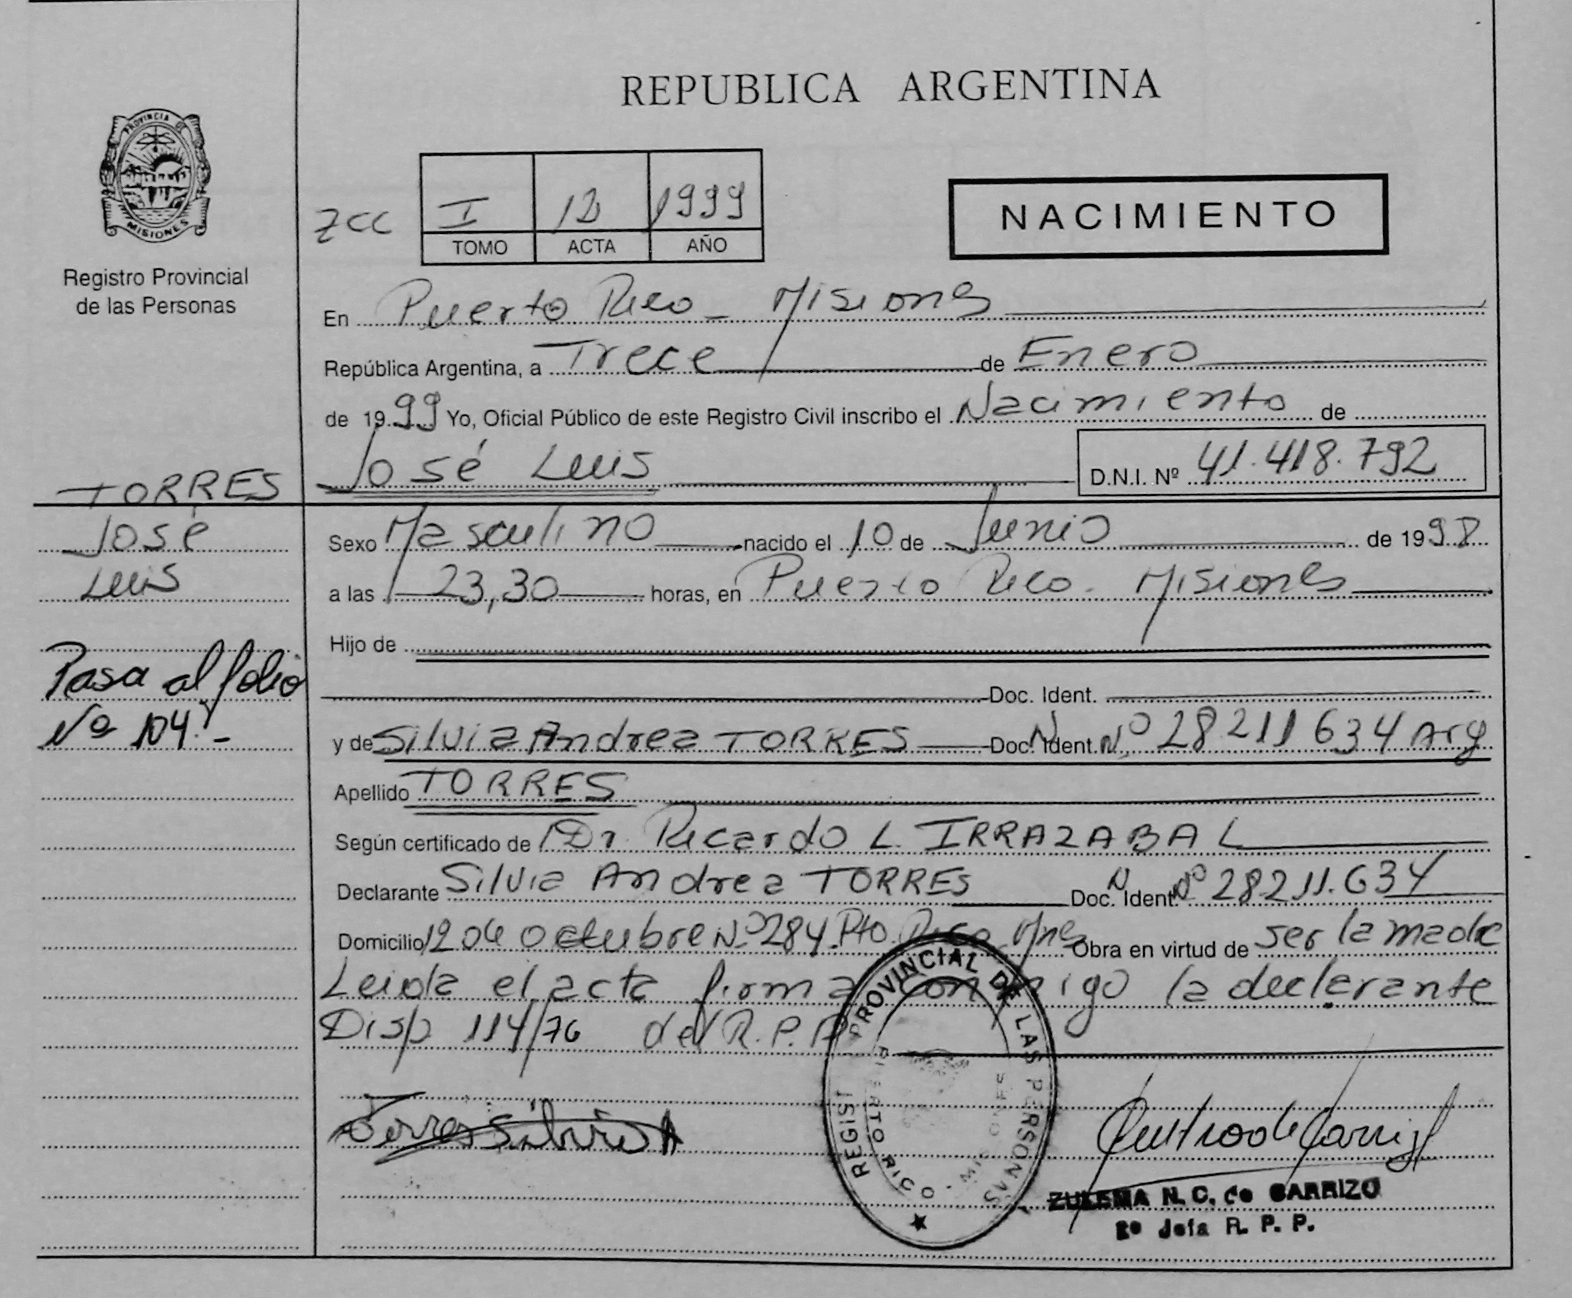 REPUBLICA ARGENTINA
PROVINCIA DE
MISIONES
Registro Provincial
de las Personas
ZCC
I 12 1999
TOMO ACTA AÑO
NACIMIENTO
En Puerto Rico - Misiones
República Argentina, a Trece de Enero
de 1999 Yo, Oficial Público de este Registro Civil inscribo el Nacimiento de
José Luis
D.N.I. Nº 41.418.792
TORRES
José
Luis
Pasa al folio
Nº 104.-
Sexo Masculino nacido el 10 de Junio de 1998
a las 23,30 horas, en Puerto Rico - Misiones
Hijo de
Doc. Ident.
y de Silvia Andrea TORRES Doc. Ident. N.º 28211634 Arg
Apellido TORRES
Según certificado de Dr. Ricardo L. IRRAZABAL
Declarante Silvia Andrea TORRES Doc. Ident. Nº 28211.634
Domicilio 12 de octubre Nº 284 Pto. Rico Mnes Obra en virtud de ser la madre
Leida el acta firma conmigo la declarante
Disp 114/76 del R.P.P.
Torres Silvia A
PROVINCIAL DE LAS PERSONAS
PUERTO RICO - MISIONES
ZULEMA N. C. de CARRIZO
2º Jefa R. P. P.